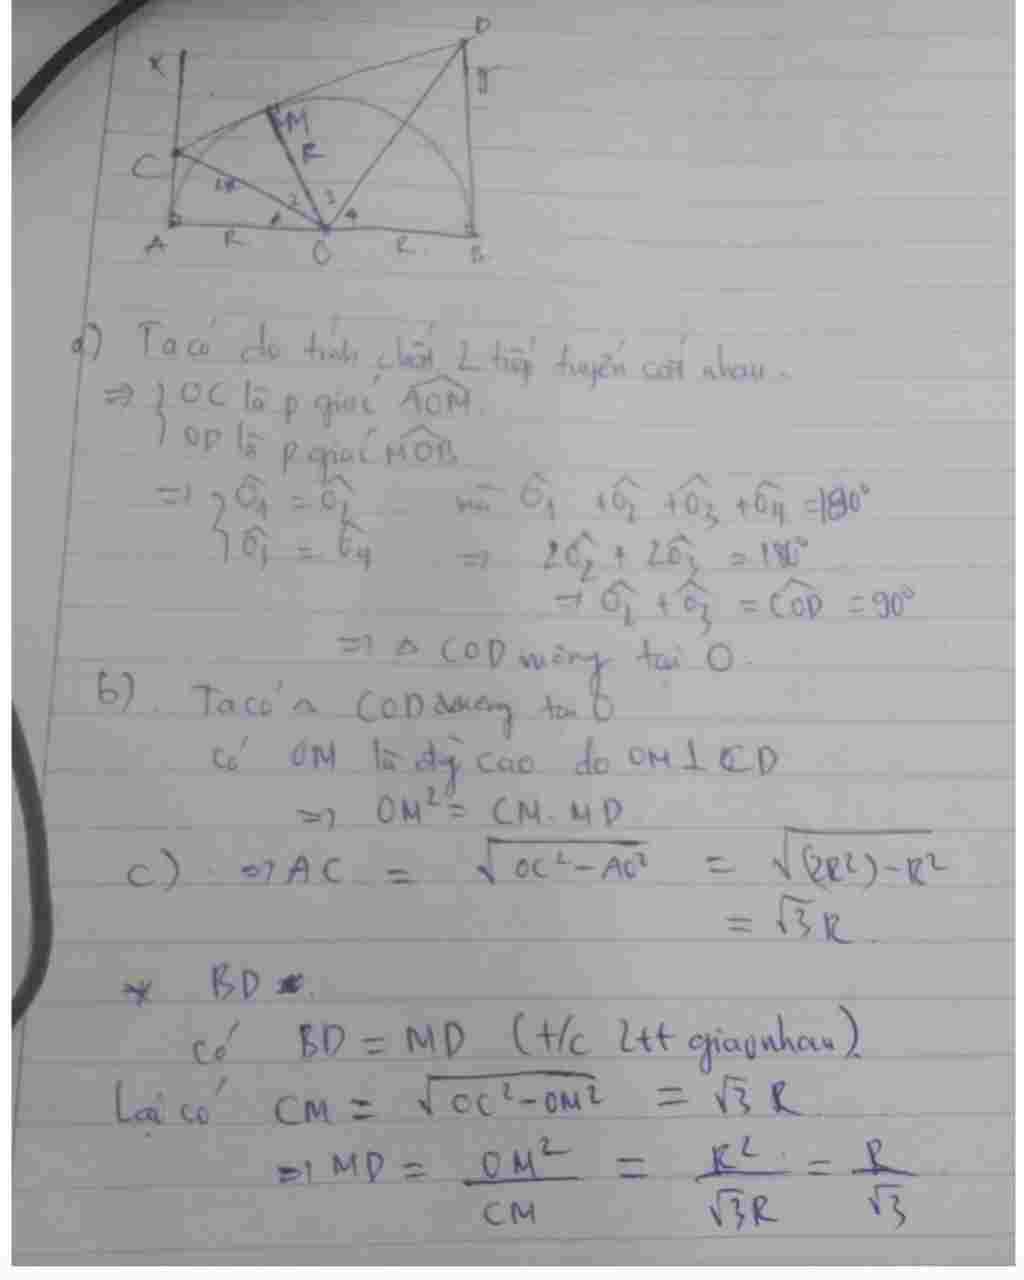 D
x
y
C
M
R
2R
2 3
1 4
A R O R B
a) Ta có do tính chất 2 tiếp tuyến cắt nhau.
⇒ { OC là p giác \widehat{AOM}
OD là p giác \widehat{MOB}
⇒ { Ô1 = Ô2 mà Ô1 + Ô2 + Ô3 + Ô4 = 180°
Ô3 = Ô4 ⇒ 2Ô2 + 2Ô3 = 180°
⇒ Ô2 + Ô3 = \widehat{COD} = 90°
⇒ Δ COD vuông tại O.
b) Ta có Δ COD vuông tại O
có OM là đg cao do OM ⊥ CD
⇒ OM² = CM. MD
c) ⇒ AC = √(OC² - AO²) = √((2R²) - R²)
= √3 R.
* BD
có BD = MD (t/c 2tt giao nhau).
Lại có CM = √(OC² - OM²) = √3 R
⇒ MD = OM²/CM = R²/√3R = R/√3